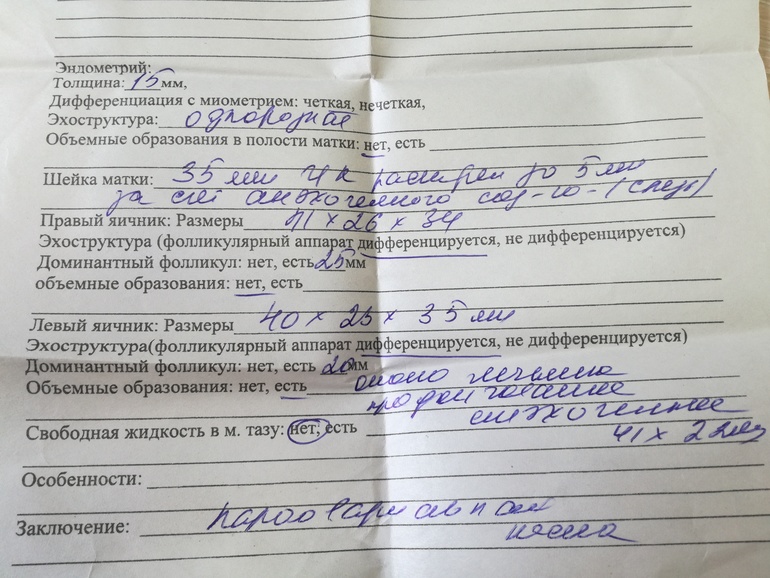 Эндометрий:
Толщина: 15 мм,
Дифференциация с миометрием: четкая, нечеткая,
Эхоструктура: однородная
Объемные образования в полости матки: нет, есть
Шейка матки: 35 мм Ц/к расширен до 5 мм
за счет анэхогенного сод-го (слизь)
Правый яичник: Размеры 41 х 26 х 34
Эхоструктура (фолликулярный аппарат дифференцируется, не дифференцируется)
Доминантный фолликул: нет, есть 25 мм
объемные образования: нет, есть
Левый яичник: Размеры 40 х 25 х 35 мм
Эхоструктура(фолликулярный аппарат дифференцируется, не дифференцируется)
Доминантный фолликул: нет, есть 20 мм
Объемные образования: нет, есть около яичника
образование
анэхогенное
Свободная жидкость в м. тазу: нет, есть
41 х 22 мм
Особенности:
Заключение: параовариальная
киста